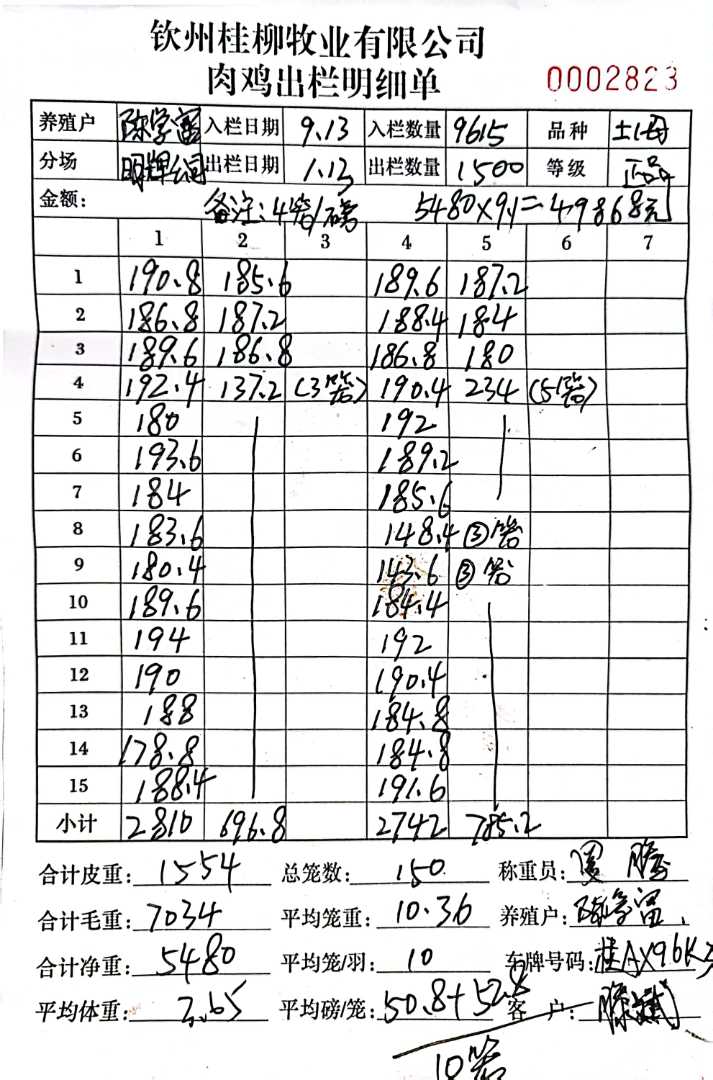 钦州桂柳牧业有限公司
肉鸡出栏明细单 0002823
养殖户 陈学富 入栏日期 9.13 入栏数量 9615 品种 土2母
分场 明辉公司 出栏日期 1.13 出栏数量 1500 等级 正品
金额: 备注:4笼/磅 5480×9.1=49868元
1 2 3 4 5 6 7
1 190.8 185.6 189.6 187.2
2 186.8 187.2 188.4 184
3 189.6 186.8 186.8 180
4 192.4 137.2 (3笼) 190.4 234 (5笼)
5 180 192
6 193.6 189.2
7 184 185.6
8 183.6 148.4 ③笼
9 180.4 143.6 ③笼
10 189.6 184.4
11 194 192
12 190 190.4
13 188 184.8
14 178.8 184.8
15 188.4 191.6
小计 2810 696.8 2742 785.2
合计皮重: 1554 总笼数: 150 称重员:
合计毛重: 7034 平均笼重: 10.36 养殖户: 陈学富
合计净重: 5480 平均笼/羽: 10 车牌号码: 桂AX96K
平均体重: 3.65 平均磅/笼: 50.8+52.8 客户:
10笼